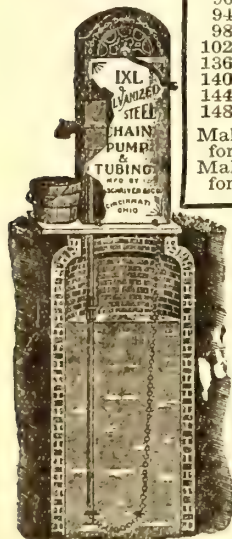 IXL
GALVANIZED
STEEL
CHAIN
PUMP
&
TUBING
MFD BY
SCHRIVER & CO
CINCINNATI
OHIO
94
98
102
136
140
144
148
Mal
for
Mal
for